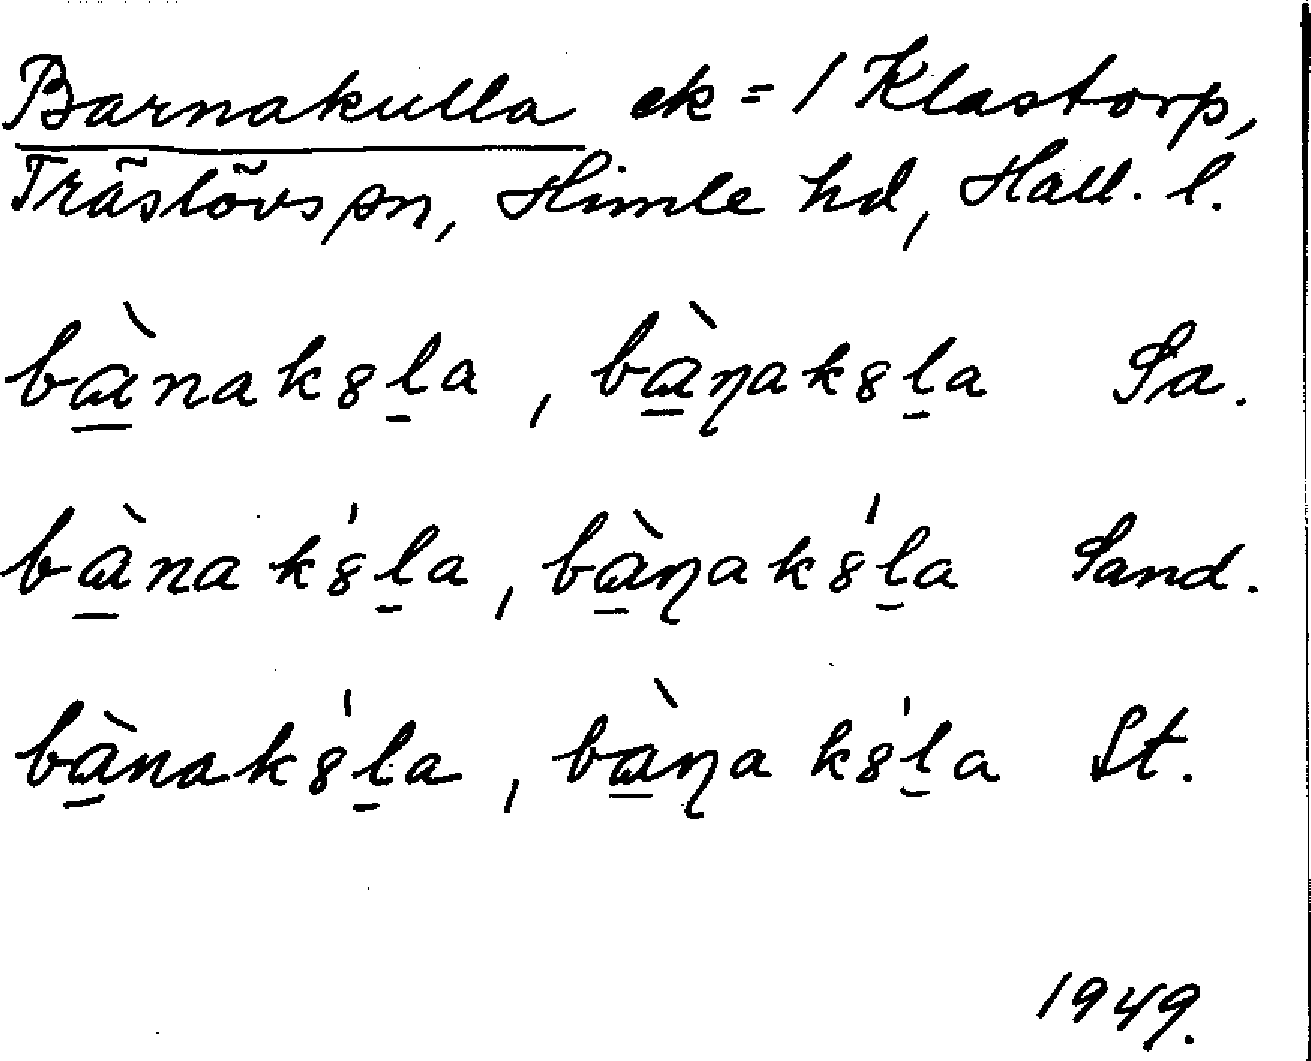 Barnakulla ek = 1 Klastorp,
Träslövs sn, Himle hd, Hall. l.
bà̱nak8ḻa, bà̱ɳak8ḻa Sa.
bà̱nak8́ḻa, bà̱ɳak8́ḻa Sand.
bà̱nak8́ḻa, bà̱ɳak8́ḻa St.
1949.